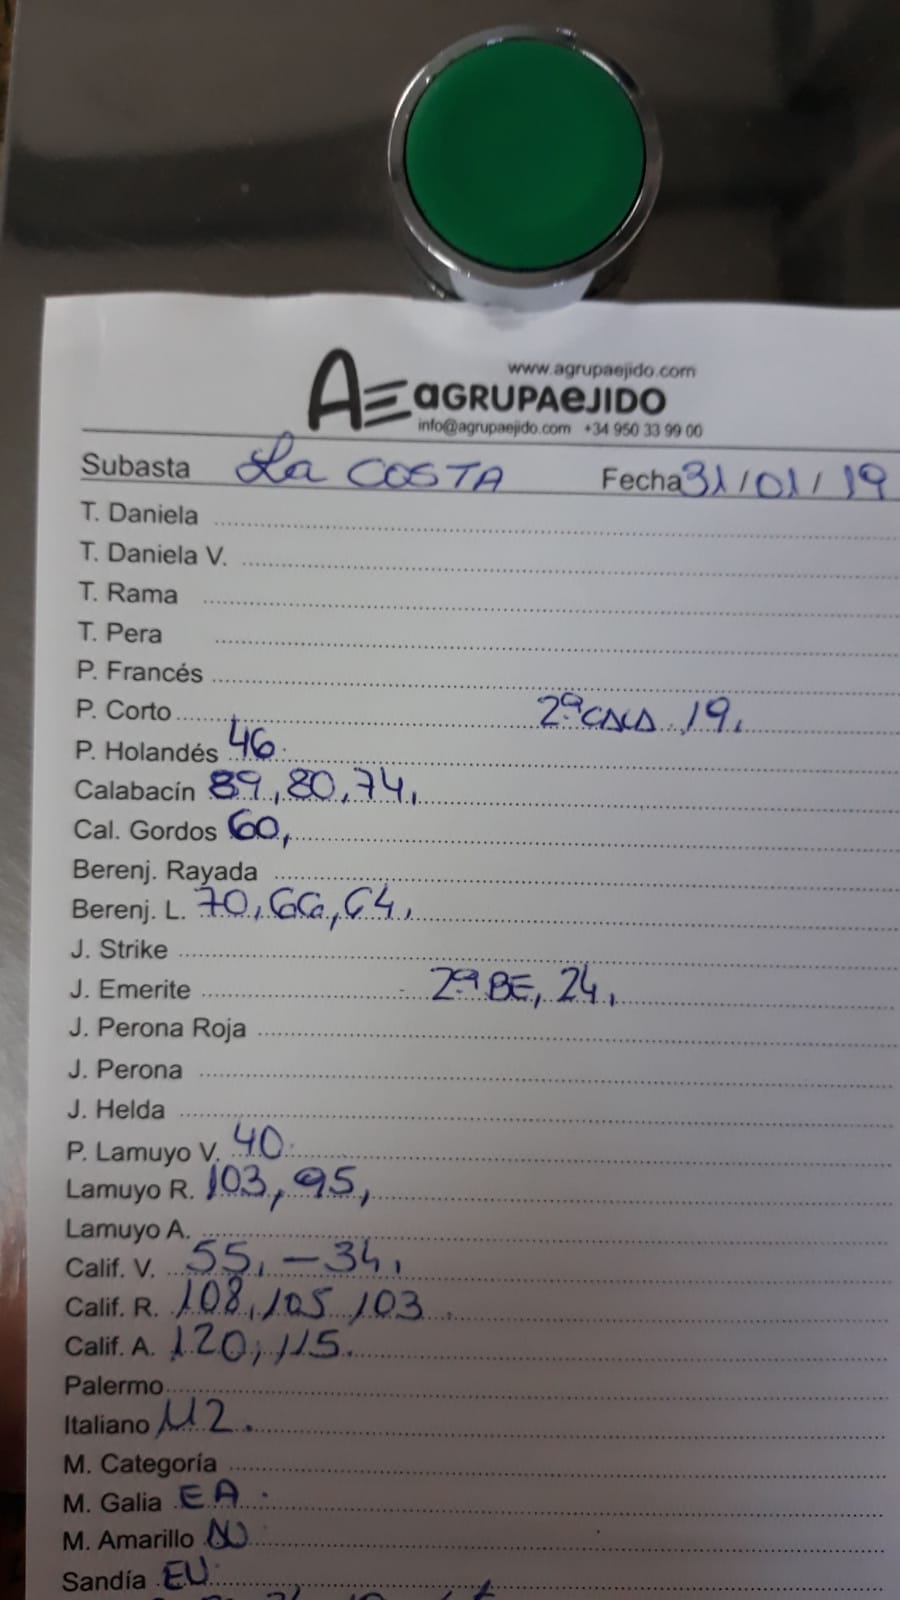 www.agrupaejido.com
AE aGRUPAeJIDO
info@agrupaejido.com +34 950 33 99 00
Subasta La COSTA Fecha 31/01/19
T. Daniela
T. Daniela V.
T. Rama
T. Pera
P. Francés
P. Corto 2ª 19.
P. Holandés 46
Calabacín 89, 80, 74,
Cal. Gordos 60,
Berenj. Rayada
Berenj. L. 70, 66, 64,
J. Strike
J. Emerite 2ª BE, 24,
J. Perona Roja
J. Perona
J. Helda
P. Lamuyo V. 40
Lamuyo R. 103, 95,
Lamuyo A.
Calif. V. 55, - 34,
Calif. R. 108, 105 103
Calif. A. 120, 115.
Palermo
Italiano
M. Categoría
M. Galia EA
M. Amarillo
Sandía EU